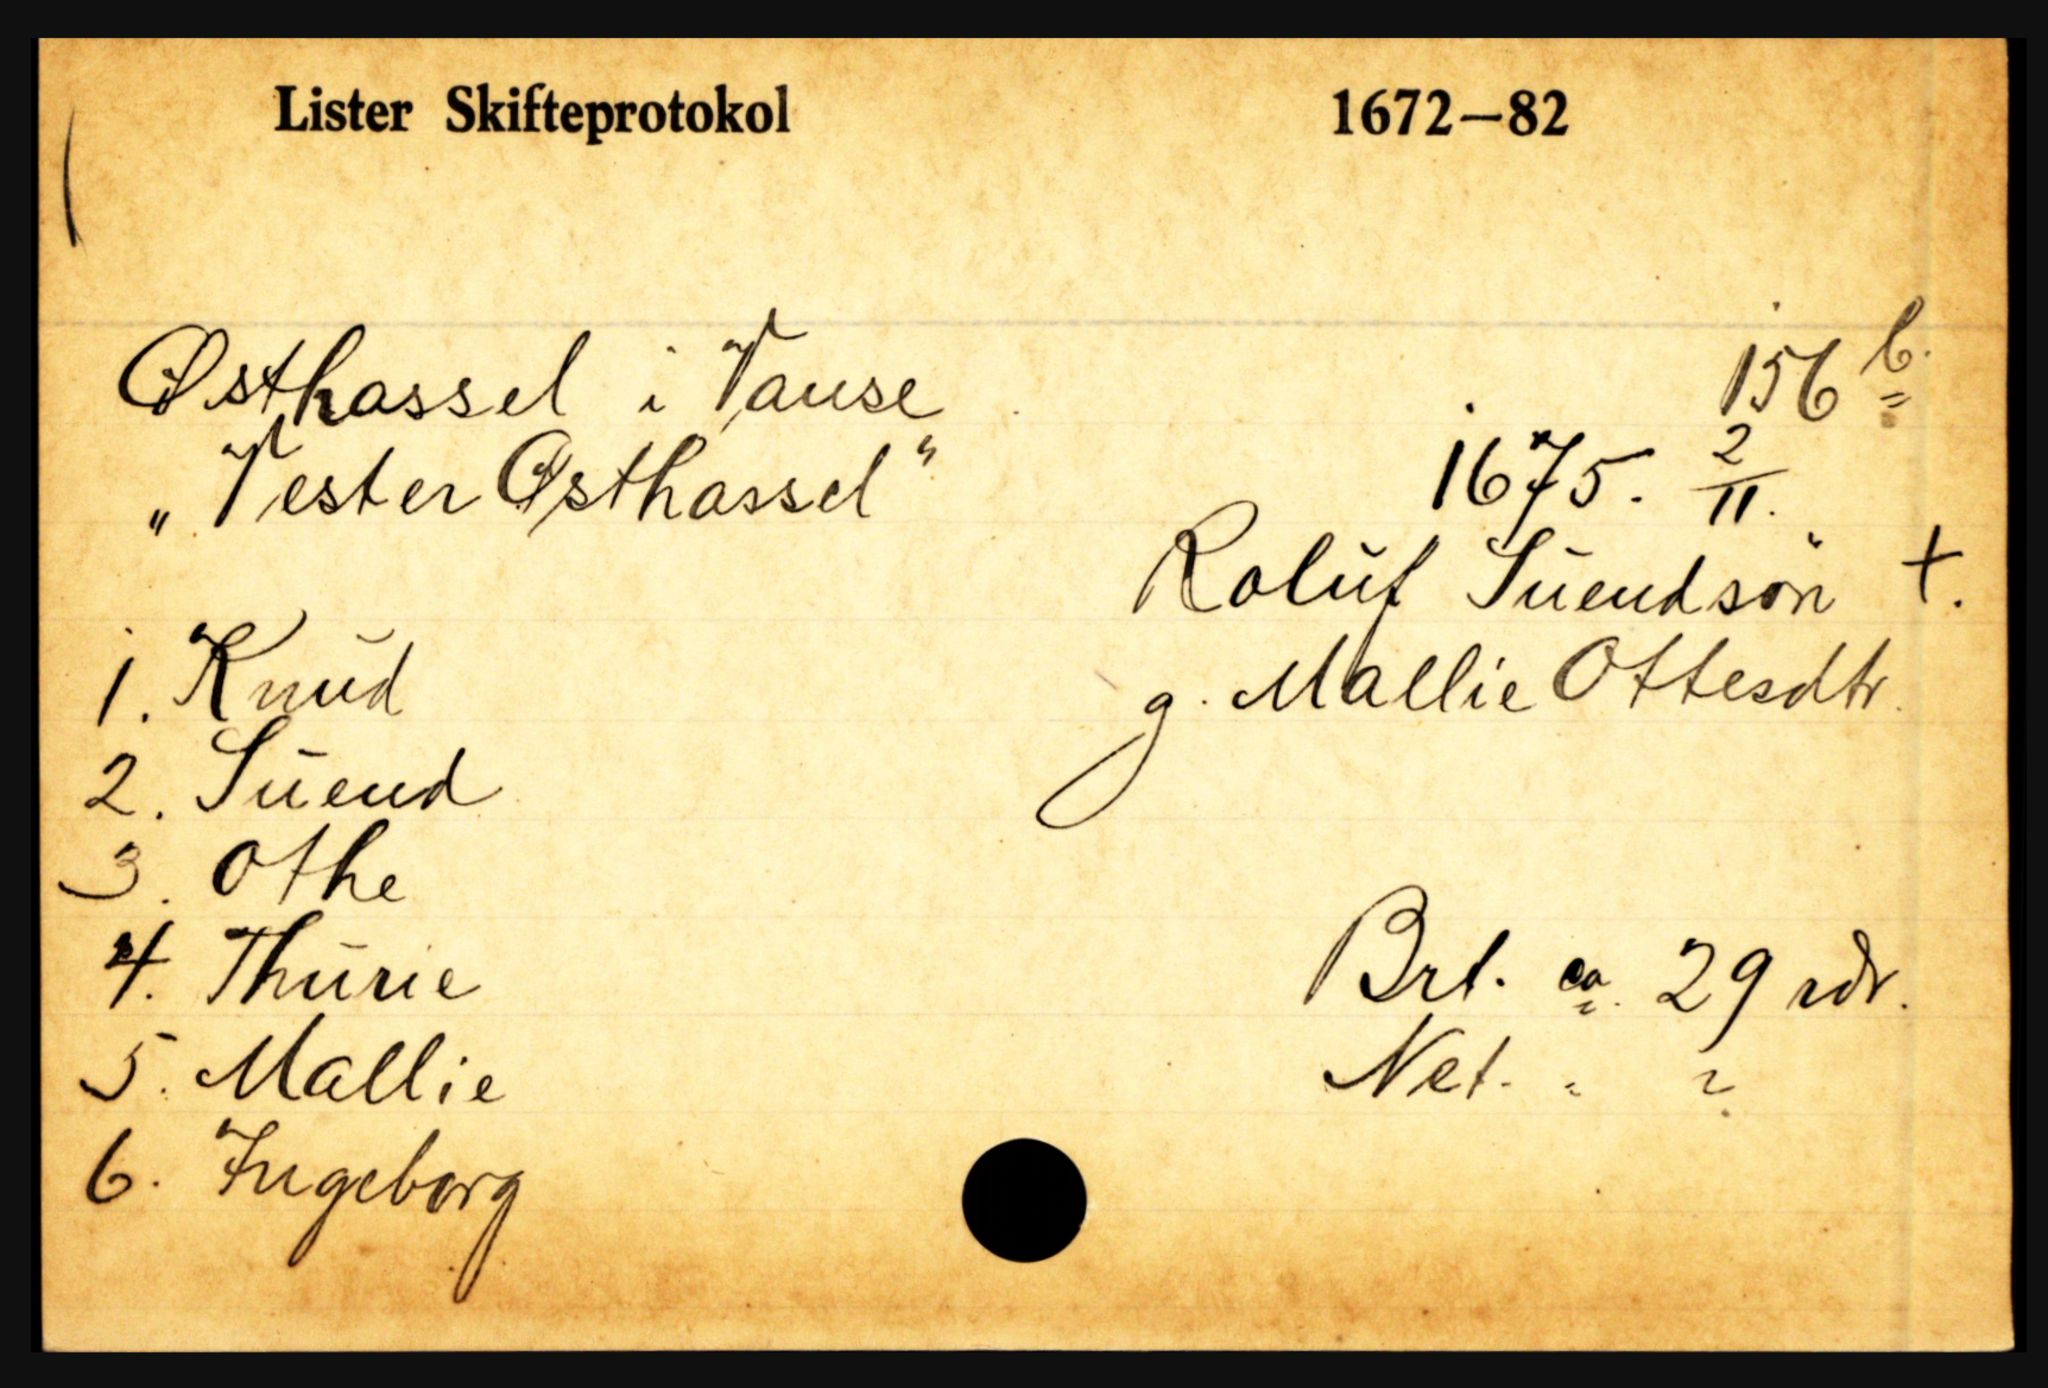 Lister Skifteprotokol 1672—82
Østhassel i Vanse 156 b.
„Vester Østhassel" 1675. 2/11.
Roluf Suendsön +.
g. Mallie Ottesdtr.
1. Knud
2. Suend
3. Othe
4. Thurie
5. Mallie
6. Ingeborg
Brt. ca. 29 rdr.
Net. " ?